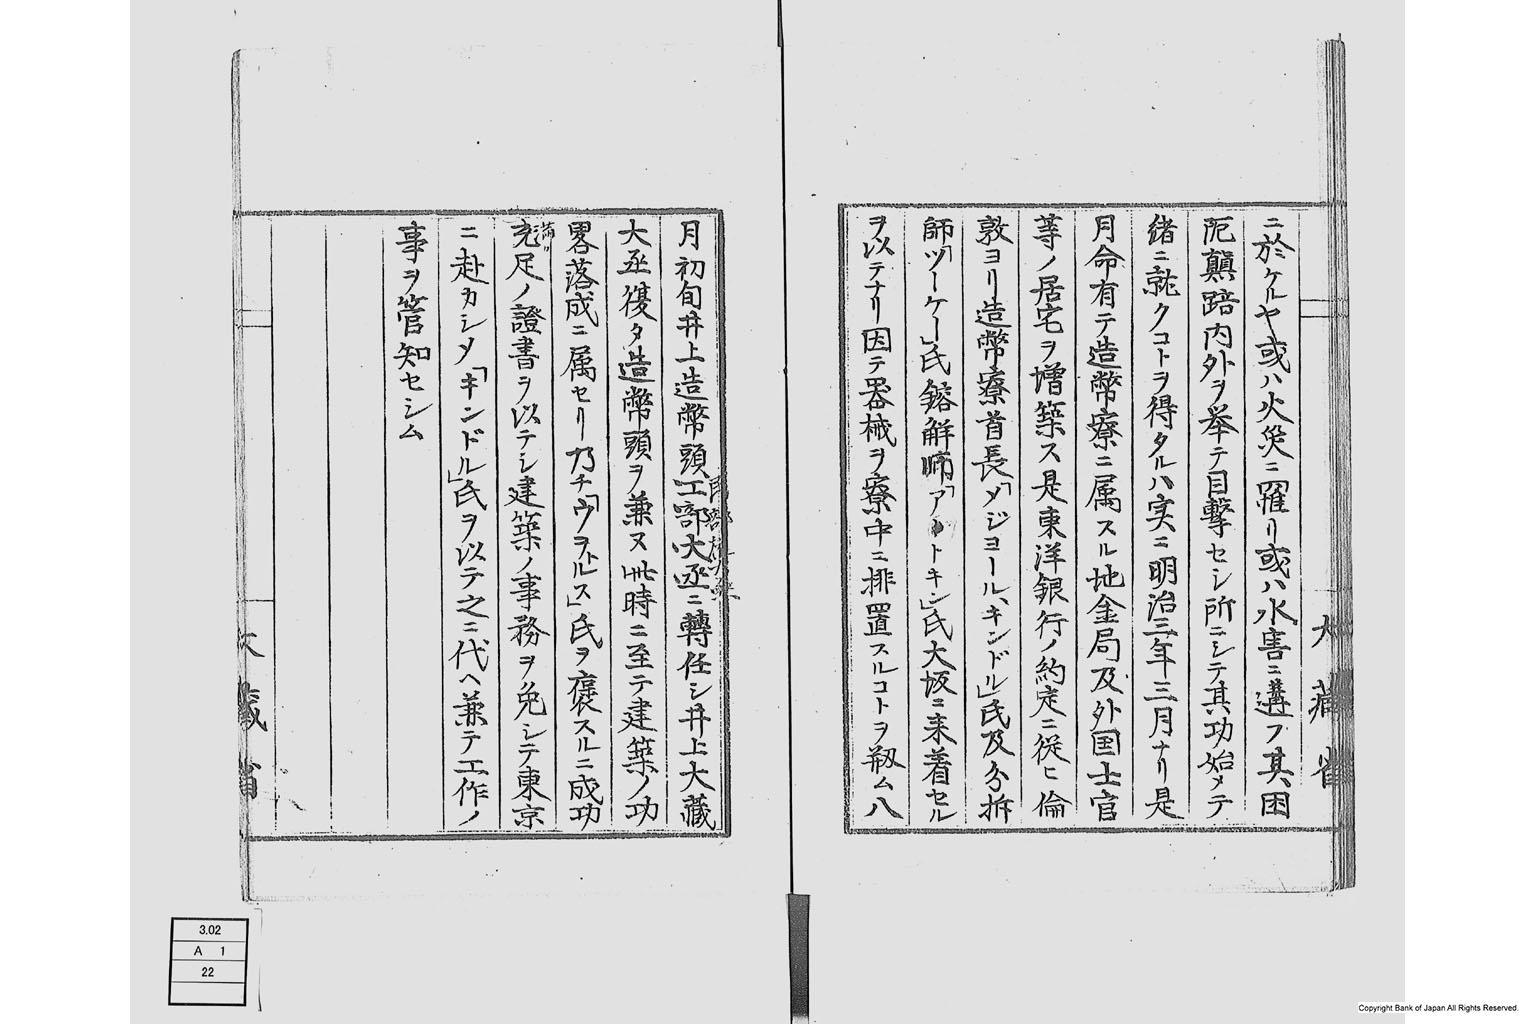 ニ於ケルヤ或ハ火災ニ罹リ或ハ水害ニ遘フ其困
阨顛踣内外ヲ挙テ目撃セシ所ニシテ其功始メテ
緒ニ就クコトヲ得タルハ実ニ明治三年三月ナリ是
月命有テ造幣寮ニ属スル地金局及外国士官
等ノ居宅ヲ増築ス是東洋銀行ノ約定ニ従ヒ倫
敦ヨリ造幣寮首長「メジヨール、キンドル」氏及分拆
師「ツーケー」氏鎔解師「アートキン」氏大坂ニ来着セル
ヲ以テナリ因テ器械ヲ寮中ニ排置スルコトヲ剏ム八
大藏省
月初旬井上造幣頭工部大丞ニ轉任シ井上大藏
大丞復タ造幣頭ヲ兼ヌ此時ニ至テ建築ノ功
畧落成ニ属セリ乃チ「ウヲトルス」氏ヲ褒スルニ成功
充足ノ證書ヲ以テシ建築ノ事務ヲ免シテ東京
ニ赴カシメ「キンドル」氏ヲ以テ之ニ代ヘ兼テ工作ノ
事ヲ管知セシム
大藏省
3.02
A 1
22
Copyright Bank of Japan All Rights Reserved.